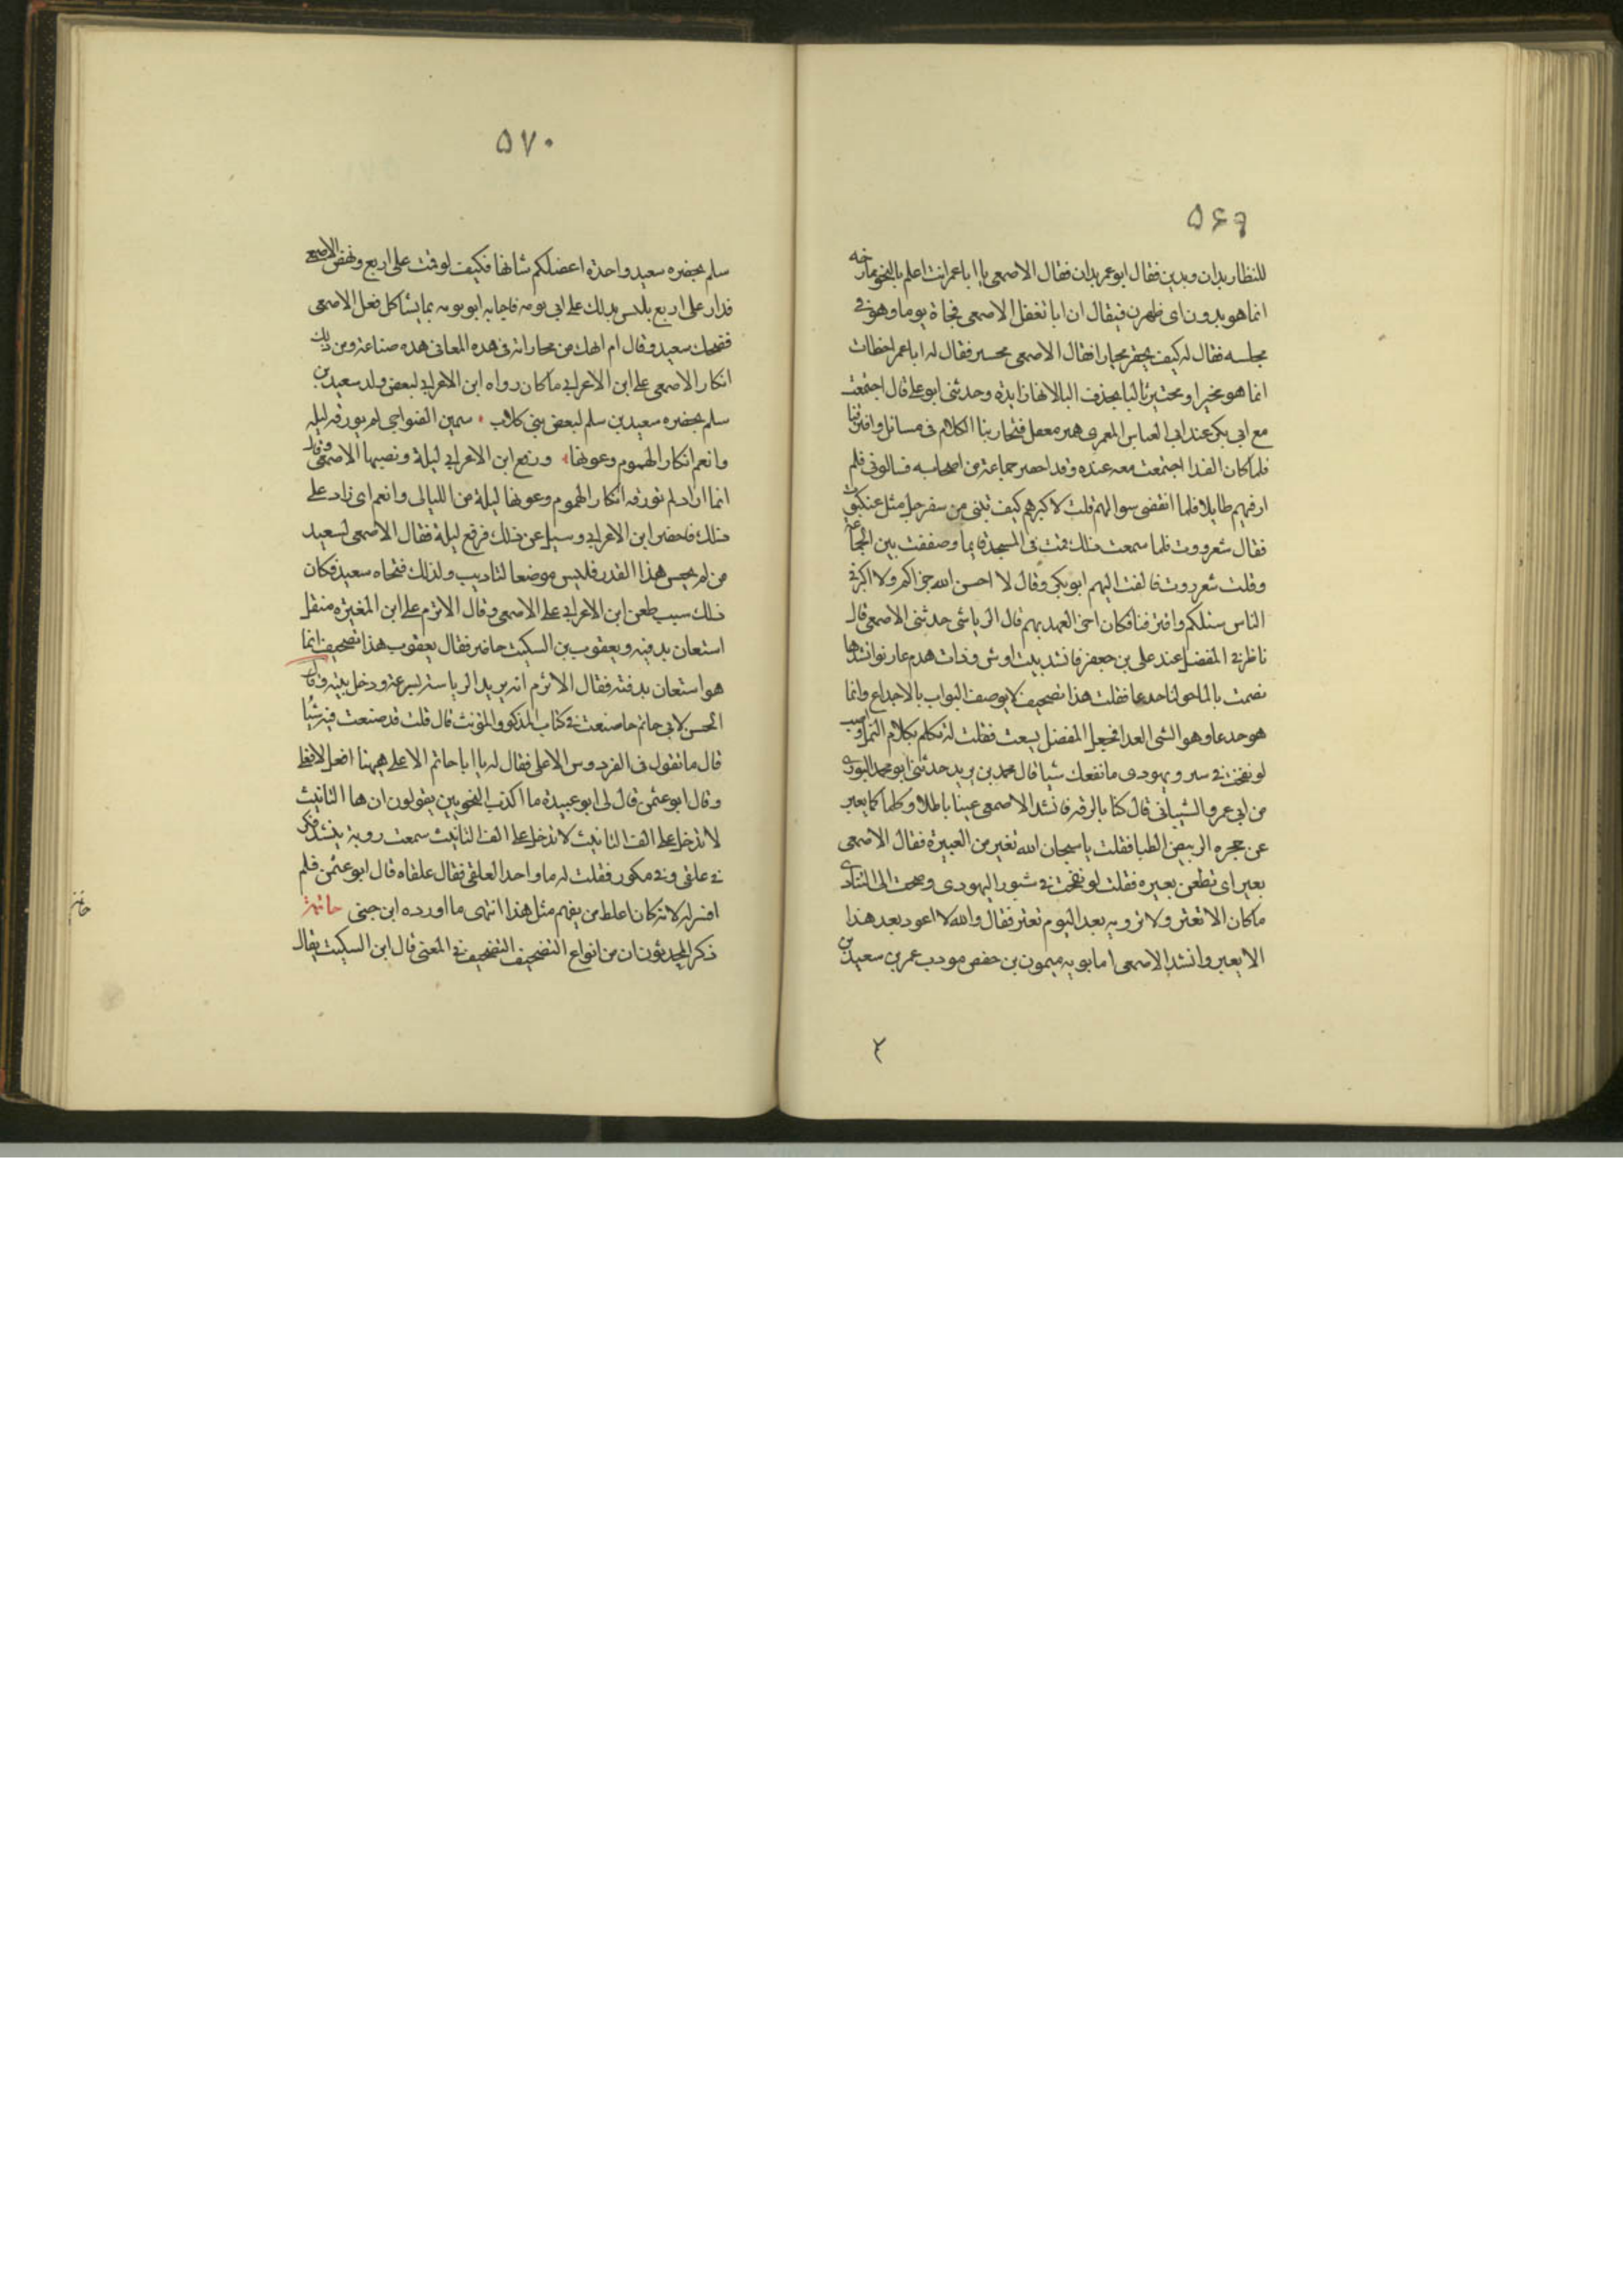 ۵۶۹
للنظار بدان وبدين فقال ابو عمر بدان فقال الاصمعى يا ابا عمر انت اعلم بالنحو
انما هو بدون اى ظهرن فيقال ان ابا تغفل الاصمعى فجاة يوما وهو فى
مجلسه فقال له كيف يحقر مختارا فقال الاصمعى محسر فقال له ابا عمر اخطات
انما هو مخيرا ومحتير ثالثا بحذف التا لانها زايدة وحدثنى ابو على قال اجتمعت
مع ابى بكر عند ابى العباس المعمرى معقل فتجارينا الكلام فى مسائل وافترقنا
فلما كان الغدا اجتمعت معه عنده وقد احضر جماعة من اصحابه فسالونى فلم
ار فيهم طايلا فلما انقضى سوالهم قلت لاكبرهم كيف تبنى من سفرجل مثل عنكبوت
فقال سفرروت فلما سمعت ذلك قمت فى المسجد قايما وصفقت بين الجماعة
وقلت سفرروت فالفت اليهم ابو بكر وقال لا احسن الله جزاكم ولا اكثر فى
الناس مثلكم وافترقنا فكان اخر العهد بهم قال الرياشى حدثنى الاصمعى قال
ناظرنى المفضل عند على بن جعفر فانشد بيت اوس وذات هدم عار نواشرها
تصمت بالما تولبا جدعا فقلت هذا تصحيف لا يوصف التولب بالاجداع وانما
هو جدعا وهو الشى الغدا فجعل المفضل يسعت فقلت له تكلم بكلام النمل واصب
لو نفخت فى سىور يهودى ما نفعك شيا قال محمد بن يريد حدثنى ابو محمد التوزى
من ابى عمرو الشيبانى قال كنا بالرقه فانشد الاصمعى عينا باطلا وظلما كما يعبر
عن حجره الربيض الظبا فقلت يا سبحان الله تعتر من العتيرة فقال الاصمعى
بعتر اى تطعن بعيره فقلت لو نفخت فى شبور اليهودى وصحت الى التنادى
ما كان الا تعتر ولا ترويه بعد اليوم تعتر فقال والله لا اعود بعد هذا
الا يعبر وانشد الاصمعى ابا بوبه ميمون بن حفص مودب عمر بن سعيد بن
۲
۵۷۰
سلم بحضره سعيد واحدة اعضلكم شانها فكيف لو قمت على اربع ونهض الاصمعى
فدار على اربع يلبس بذلك على ابى بوبه فاجابه ابو بوبه بما يشاكل فعل الاصمعى
فضحك سعيد وقال ام انهك من مجاراته فى هذه المعانى هذه صناعته ومن ذلك
انكار الاصمعى على ابن الاعرابى ما كان رواه ابن الاعرابى لبعض ولد سعيد بن
سلم بحضره سعيد بن سلم لبعض بنى كلاب سمين الضواحى لم يورقه ليله
وانعم ابكار الهموم وعونها ورفع ابن الاعرابى ليلة ونصبها الاصمعى وقال
انما اراد لم تورقه ابكار الهموم وعونها ليلة من الليالى وانعم اى زاد على
ذلك فاحضر ابن الاعرابى وسيل عن ذلك فرفع ليلة فقال الاصمعى لسعيد
من لم يحسن هذا القدر فليس موضعا لتاديب ولدك فنحاه سعيد فكان
ذلك سبب طعن ابن الاعرابى على الاصمعى وقال الاثرم على ابن المغيره مثقل
استعان بدفيه ويعقوب بن السكيت حاضر فقال يعقوب هذا تصحيف انما
هو استعان بدفته فقال الاثرم انه يريد الرياسة بسرعة ودخل بيته وقال
الحسن لابى حاتم ما صنعت فى كتاب المذكر والمؤنث قال قلت قد صنعت فيه شيئا
قال ما تقول فى الفردوس الاعلى فقال له يا ابا حاتم الاعلى ههنا افعل لا فعلى
وقال ابو عثمن قال لى ابو عبيدة ما اكذب النحويين يقولون ان ها التانيث
لا تدخل على الف التانيث لا تدخل على الف التانيث سمعت روبة ينشد فكر
فى علقى وفى مكور فقلت له ما واحد العلقى فقال علقاه قال ابو عثمن فلم
افسر له لانه كان اغلظ من يفهم مثل هذا انتهى ما اورده ابن جنى خاتمة
ذكر المحدثون ان من انواع التصحيف التصحيف فى المعنى قال ابن السكيت يقال
خاتمة